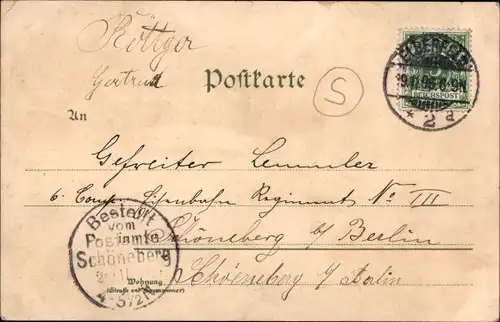 Röttger
Gertrud
Postkarte
REICHSPOST
An
Gefreiter Lemmler
6. Comp. Eisenbahn Regiment No III
Schöneberg b/ Berlin
Schöeneberg b/ Berlin
Bestellt
vom
Postamte
Schöneberg
4-5½N
Wohnung
(Straße und Hausnummer)
S
* 2 a